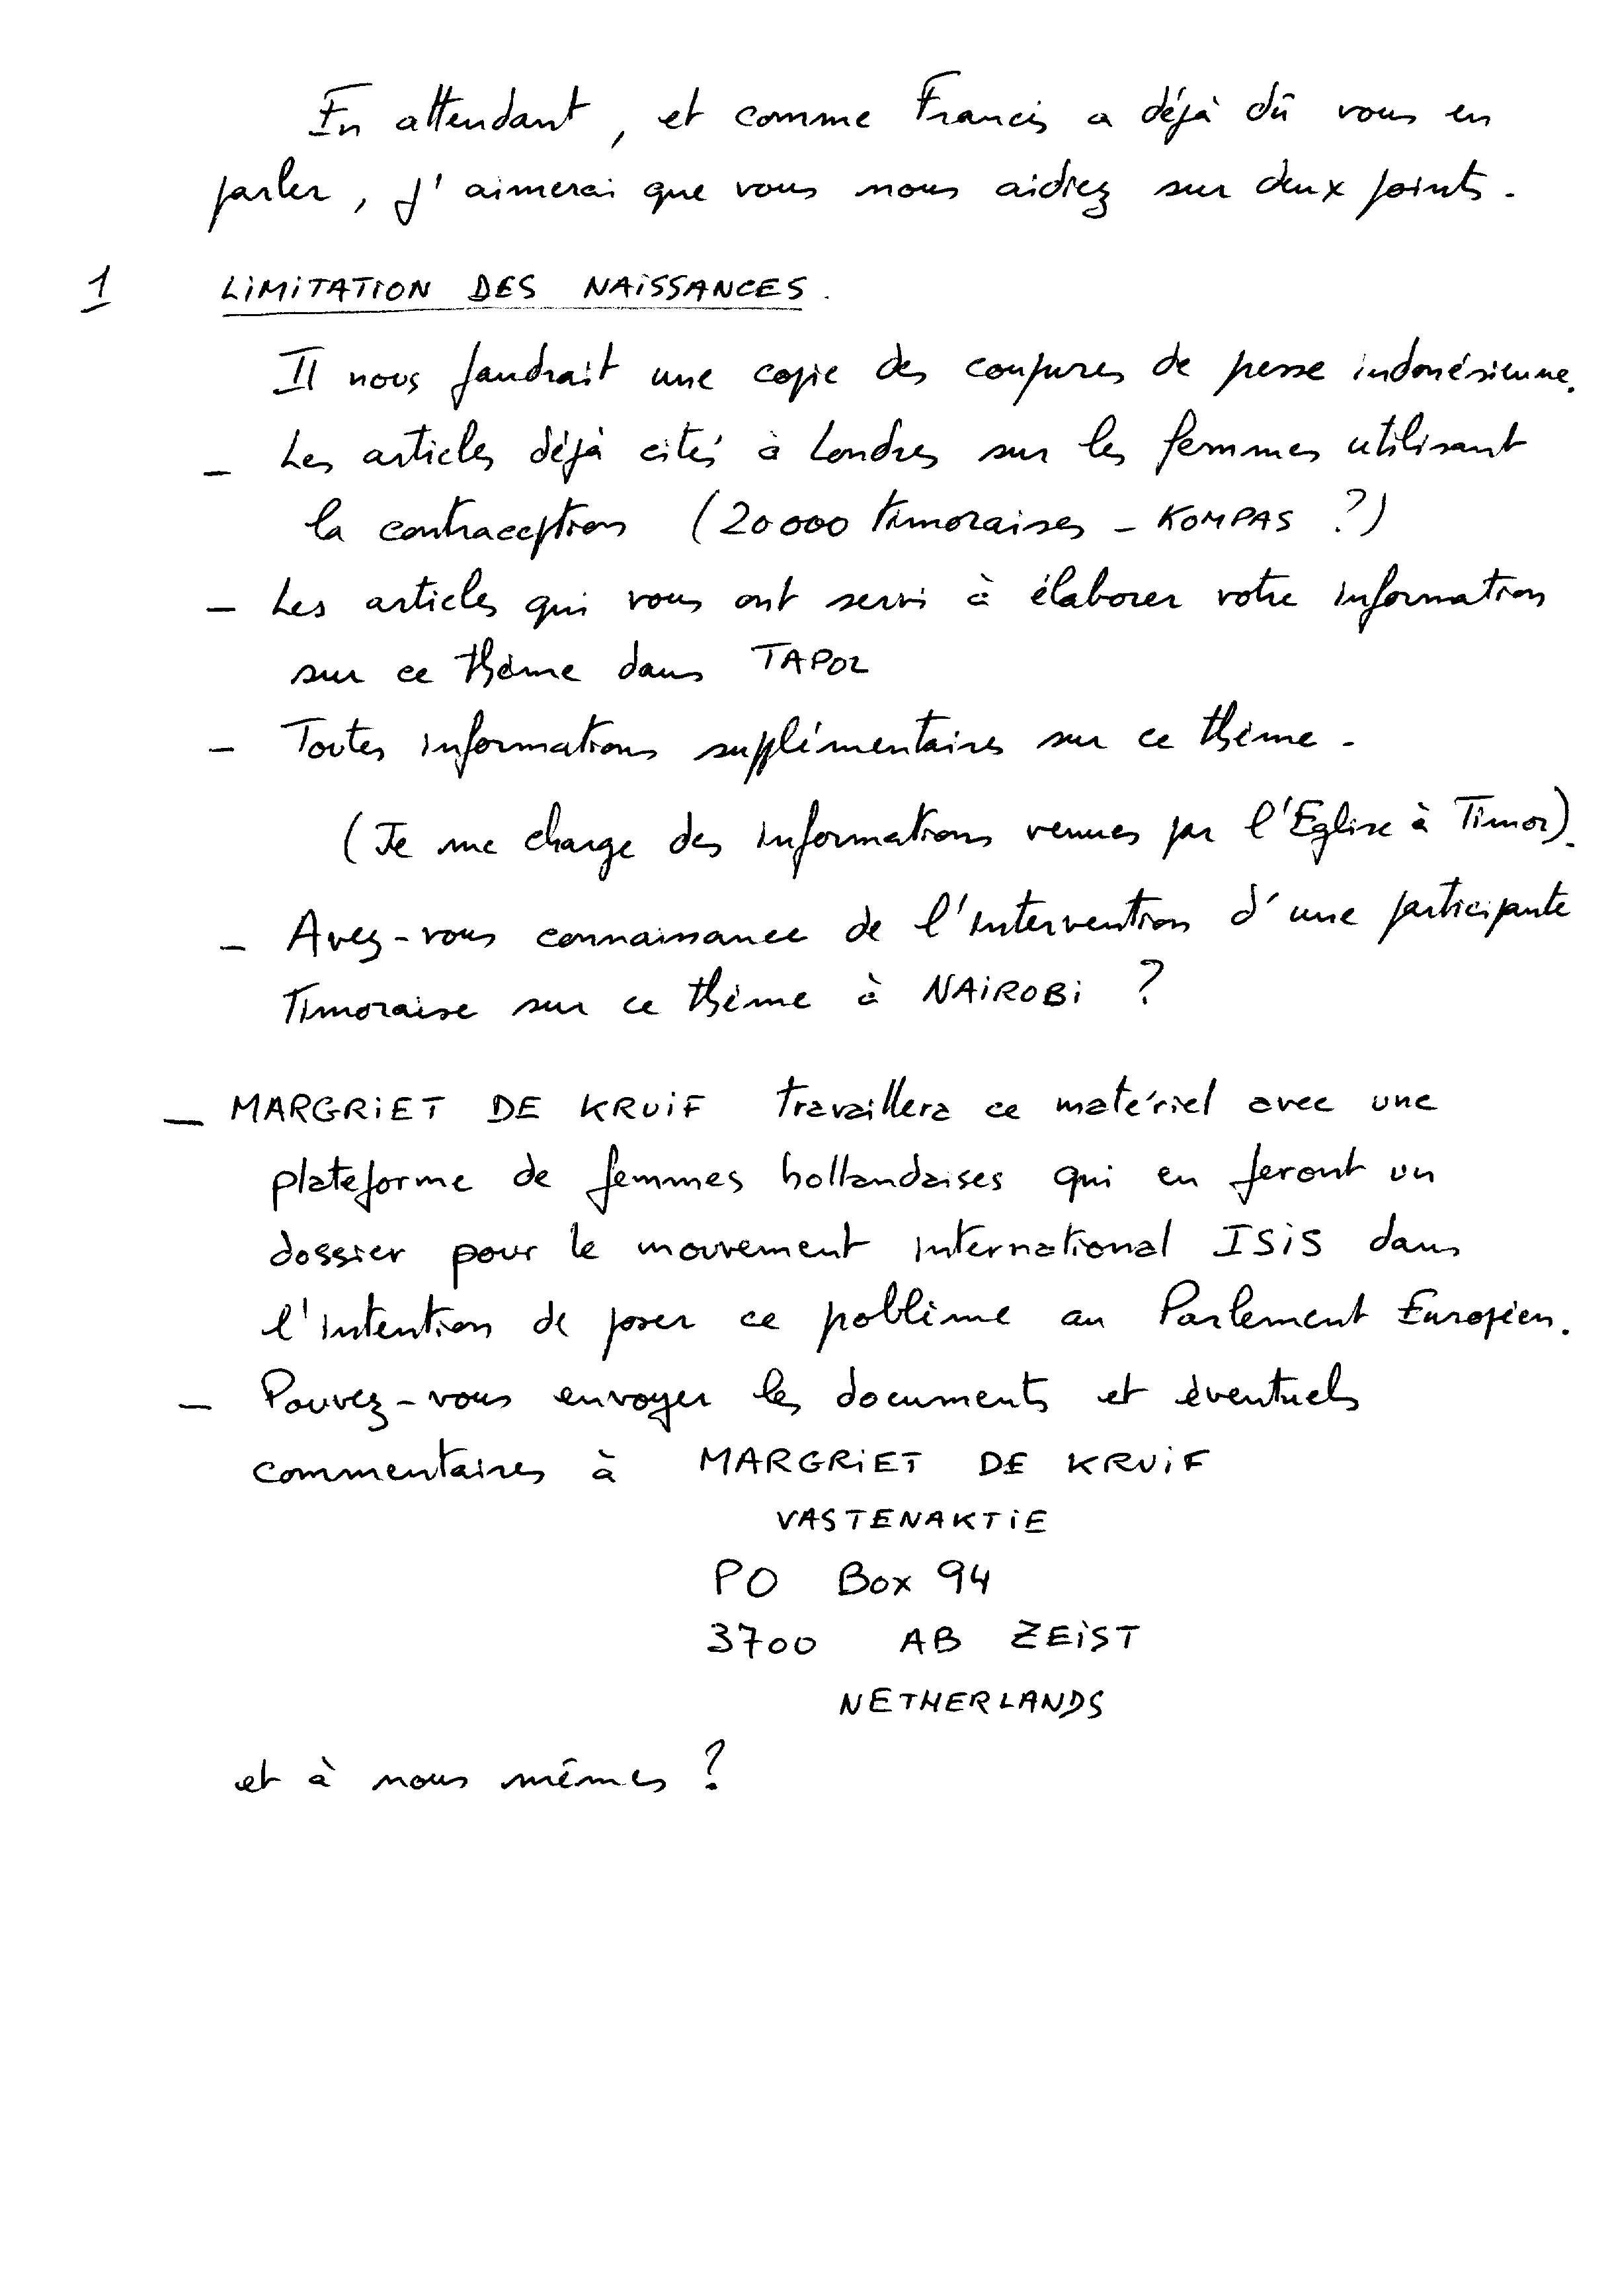 En attendant, et comme Francis a déjà dû vous en
parler, j'aimerai que vous nous aidiez sur deux points.
1 LIMITATION DES NAISSANCES.
Il nous faudrait une copie des coupures de presse indonésienne.
- Les articles déjà cités à Londres sur les femmes utilisant
la contraception (20000 timoraises - KOMPAS ?)
- Les articles qui vous ont servi à élaborer votre information
sur ce thème dans TAPOL
- Toutes informations supplémentaires sur ce thème.
(Je me charge des informations venues par l'Eglise à Timor).
- Avez-vous connaissance de l'intervention d'une participante
Timoraise sur ce thème à NAIROBI ?
- MARGRIET DE KRUIF travaillera ce matériel avec une
plateforme de femmes hollandaises qui en feront un
dossier pour le mouvement international ISIS dans
l'intention de poser ce poblème au Parlement Européen.
- Pouvez-vous envoyer les documents et éventuels
commentaires à MARGRIET DE KRUIF
VASTENAKTIE
PO Box 94
3700 AB ZEIST
NETHERLANDS
et à nous mêmes ?